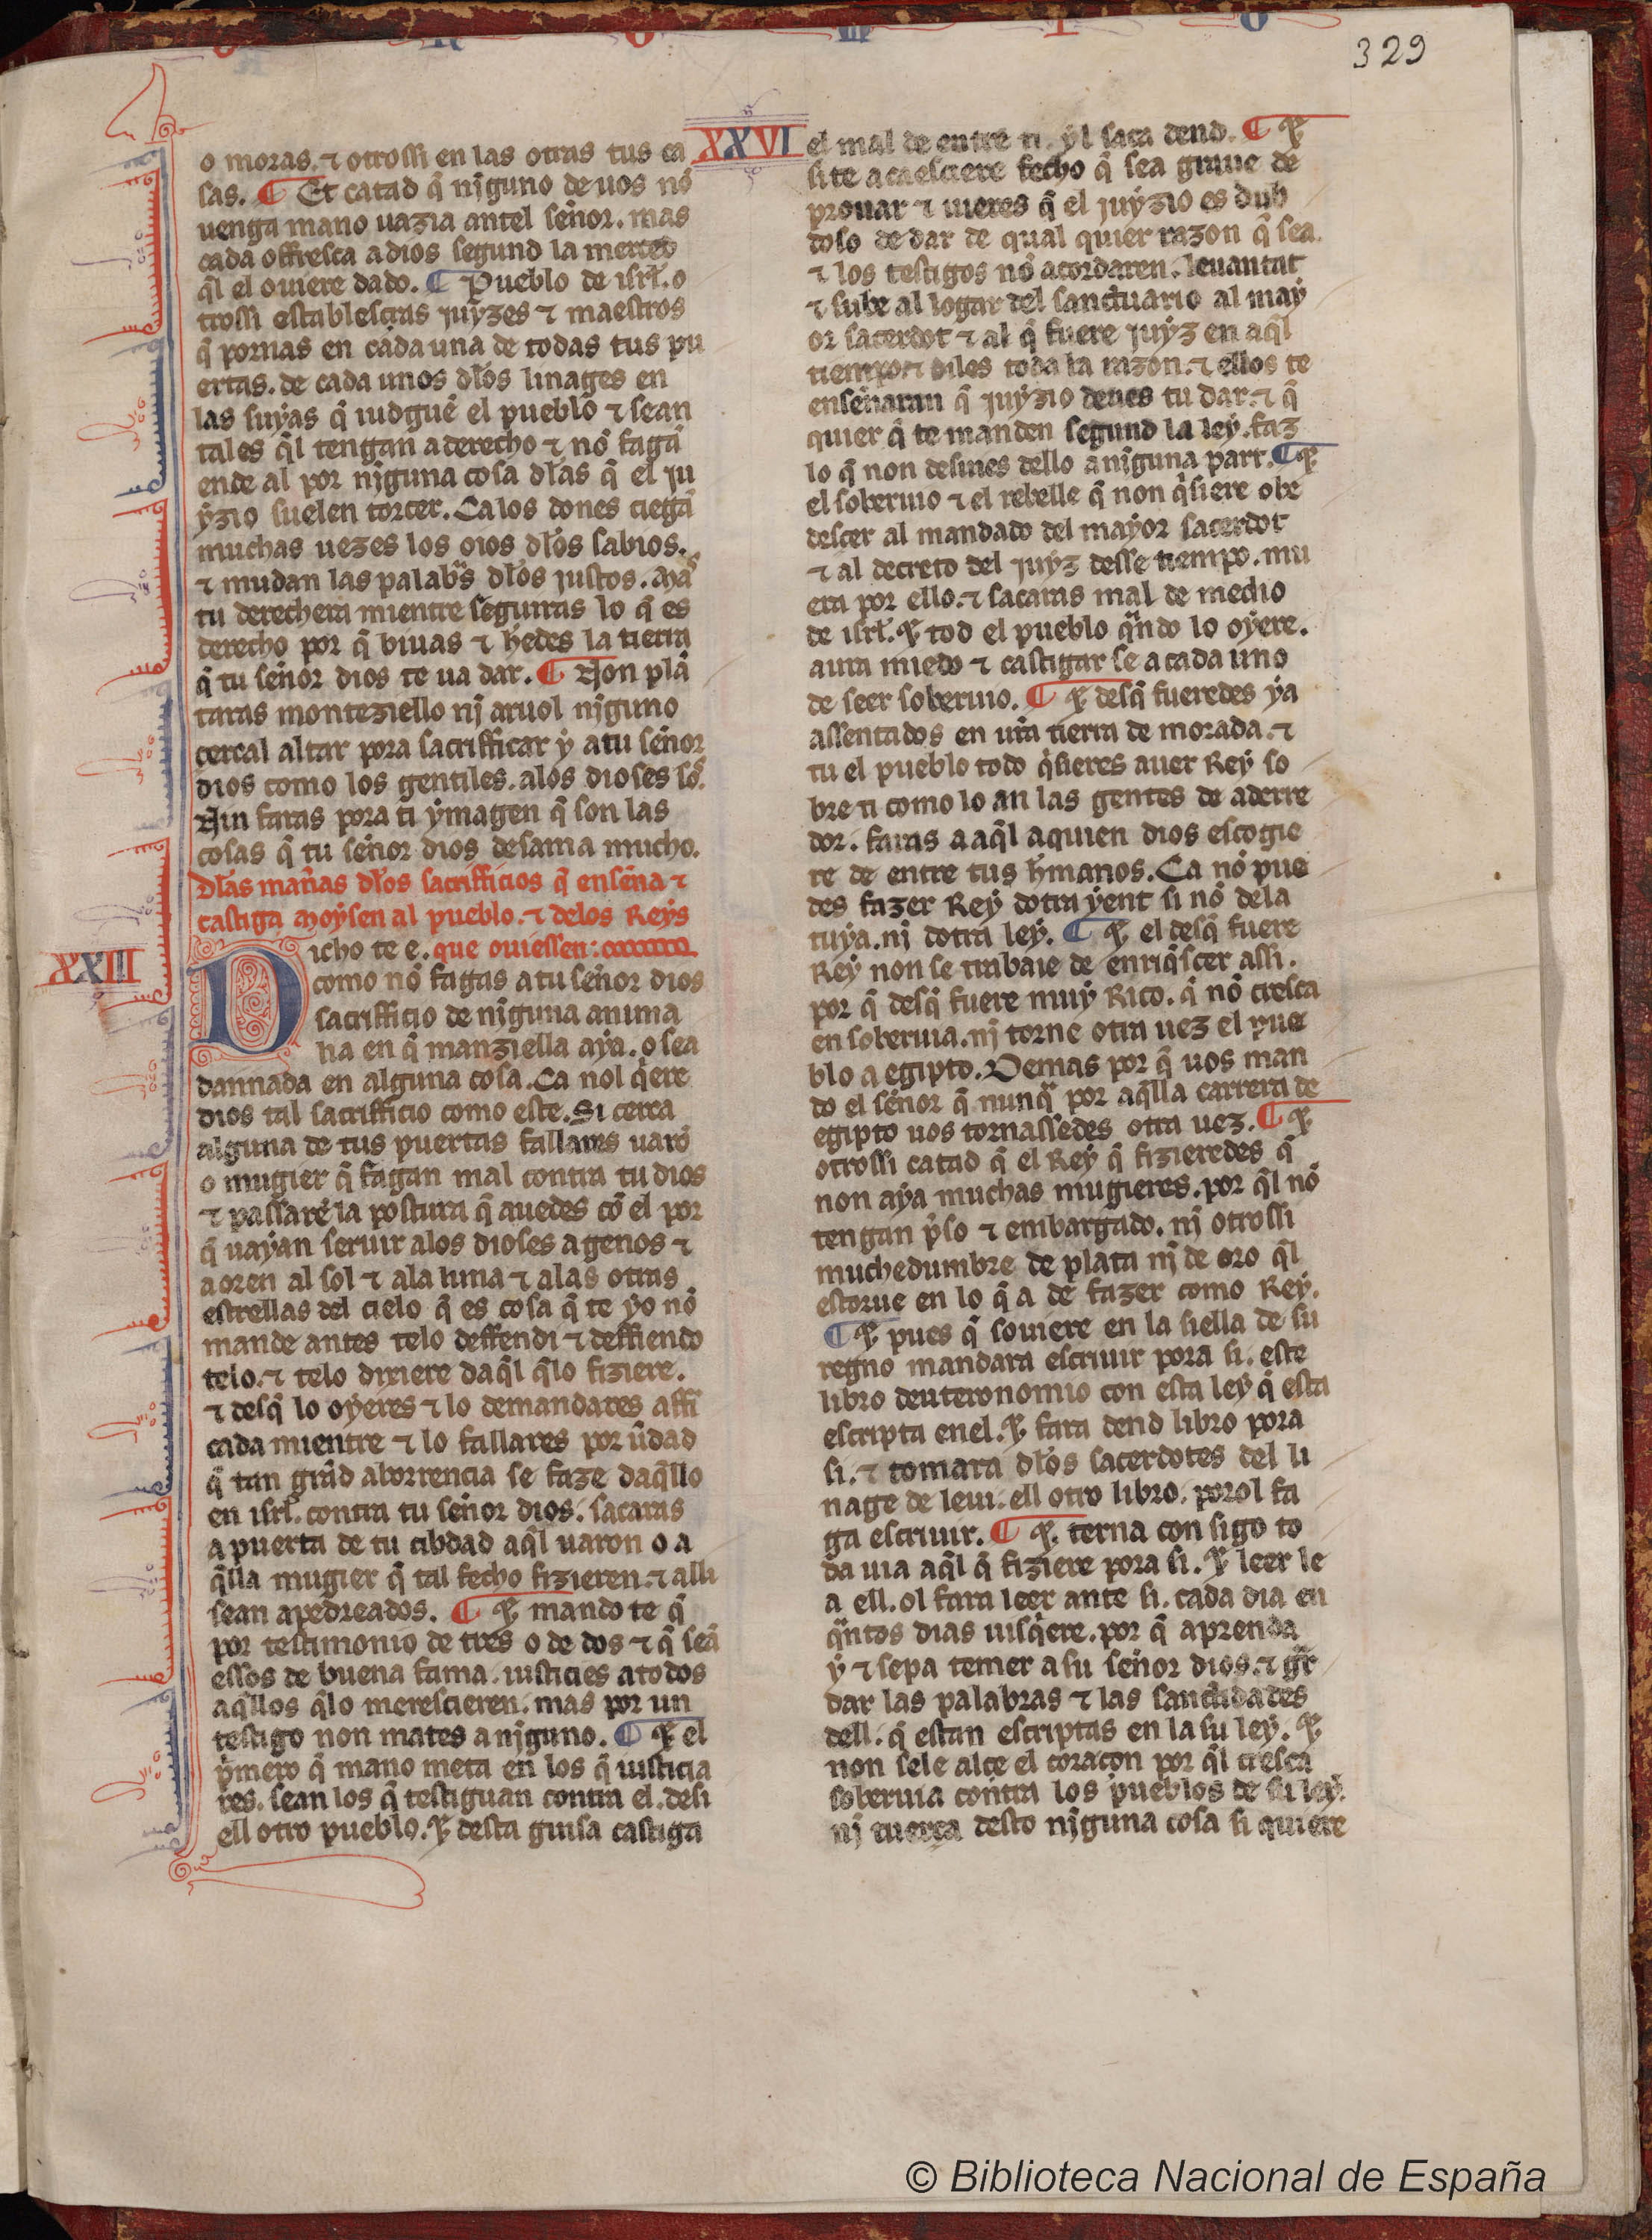 329
o moras. ⁊ otrossi en las otras tus ca
sas. ¶ Et catad q̃ nj̃guno de uos nõ
uenga mano uazia antel sẽnor. mas
cada offresca a dios segund la merced
q̃l el ouiere dado. ¶ Pueblo de isrl̃. o
trossi establesçras juyzes ⁊ maestros
q̃ pornas en cada una de todas tus pu
ertas. de cada unos dlos linages en
las suyas q̃ iudguẽ el pueblo ⁊ sean
tales q̃l tengan a derecho ⁊ nõ fagã
ende al por nj̃guna cosa dlas q̃ el ju
yzio suelen torcer. Ca los dones ciegã
muchas uezes los oios dlos sabios.
⁊ mudan las palabˢ dlos justos. Mas
tu derechera mientre seguiras lo q̃ es
derecho por q̃ biuas ⁊ hedes la tierra
q̃ tu sẽnor dios te ua dar. ¶ Non plã
taras monteziello nj aruol nj̃guno
cercal altar pora sacrifficar y a tu sẽnor
dios como los gentiles. alos dioses sõ.
Nin faras pora ti ymagen q̃ son las
cosas q̃ tu sẽnor dios desama mucho.
Dlas mañas dlos sacrifficios q̃ ensẽna ⁊
castiga Moysen al pueblo. ⁊ delos Reys
XXIII
Dicho te e. que ouiessen:
como nõ fagas a tu sẽnor dios
sacrifficio de nj̃guna anima
lia en q̃ manziella aya. o sea
dannada en alguna cosa. Ca nol q̃ere
dios tal sacrifficio como este. Si cerca
alguna de tus puertas fallares uarõ
o mugier q̃ fagan mal contra tu dios
⁊ passarẽ la postura q̃ auedes cõ el por
q̃ uayan seruir alos dioses agenos ⁊
aoren al sol ⁊ ala luna ⁊ alas otras
estrellas del cielo q̃ es cosa q̃ te yo nõ
mande antes telo deffendi ⁊ deffiendo
telo. ⁊ telo dixiere daq̃l q̃lo fiziere.
⁊ desq̃ lo oyeres ⁊ lo demandares affi
cada mientre ⁊ lo fallares por ũdad
q̃ tan grãd aborrencia se faze daq̃llo
en isrl̃. contra tu sẽnor dios. sacaras
a puerta de tu cibdad aq̃l uaron o a
q̃lla mugier q̃ tal fecho fizieren. ⁊ alli
sean apedreados. ¶ E mando te q̃
por testimonio de tres o de dos ⁊ q̃ seã
essos de buena fama. iusticies a todos
aq̃llos q̃lo merescieren. mas por un
testigo non mates a nj̃guno. ¶ E el
p̃mero q̃ mano meta en los q̃ iusticia
res. sean los q̃ testiguan contra el. desi
ell otro pueblo. E desta guisa castiga
XXVI
el mal de entre ti. yl saca dend. ¶ E
si te acaesciere fecho q̃ sea graue de
prouar ⁊ uieres q̃ el juyzio es dub
doso de dar de qual quier razon q̃ sea.
⁊ los testigos nõ acordaren. leuantat
⁊ sube al logar del sanctuario al may
or sacerdot ⁊ al q̃ fuere juyz en aq̃l
tiempo. ⁊ diles toda la razon. ⁊ ellos te
ensẽnaran q̃ juyzio deues tu dar. ⁊ q̃
quier q̃ te manden segund la ley. faz
lo q̃ non desuies dello a nj̃guna part. ¶ E
el soberuio ⁊ el rebelle q̃ non q̃siere obe
descer al mandado del mayor sacerdot
⁊ al decreto del juyz desse tiempo. mu
era por ello. ⁊ sacaras mal de medio
de isrl̃. E tod el pueblo qⁿdo lo oyere.
aura miedo ⁊ castigar se a cada uno
de seer soberuio. ¶ E desq̃ fueredes ya
assentados en ur̃a tierra de morada. ⁊
tu el pueblo todo q̃sieres auer Rey so
bre ti como lo an las gentes de aderre
dor. faras a aq̃l aquien dios escogie
re de entre tus hmanos. Ca nõ pue
des fazer Rey dotra yent si nõ dela
tuya. nj dotra ley. ¶ E el desq̃ fuere
Rey non se trabaie de enriq̃scer assi.
por q̃ desq̃ fuere muy Rico. q̃ nõ cresca
en soberuia. nj torne otra uez el pue
blo a egipto. Demas por q̃ uos man
do el sẽnor q̃ nunqᵃ por aq̃lla carrera de
egipto uos tornassedes otra uez. ¶ E
otrossi catad q̃ el Rey q̃ fizieredes q̃
non aya muchas mugieres. por q̃l nõ
tengan p̃so ⁊ embargado. nj otrossi
muchedumbre de plata nj de oro q̃l
estorue en lo q̃ a de fazer como Rey.
¶ E pues q̃ souiere en la siella de su
regno mandara escriuir pora si. este
libro deuteronomio con esta ley q̃ esta
escripta enel. E fara dend libro pora
si. ⁊ tomara dlos sacerdotes del li
nage de leui. ell otro libro. porol fa
ga escriuir. ¶ E. terna con sigo to
da uia aq̃l q̃ fiziere pora si. E leer le
a ell. ol fara leer ante si. cada dia en
qⁿtos dias uisq̃ere. por q̃ aprenda
y ⁊ sepa temer a su sẽnor dios. ⁊ gr̃
dar las palabras ⁊ las sanctidades
dell. q̃ estan escriptas en la su ley. E
non sele alce el coraçon por q̃l cresca
soberuia contra los pueblos de su ley.
nj tuerça desto nj̃guna cosa si quiere
© Biblioteca Nacional de España